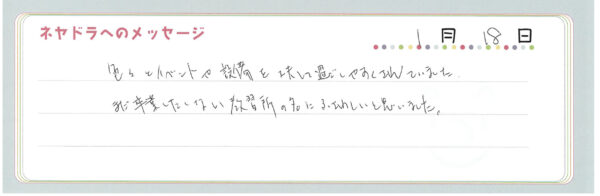 ネヤドラへのメッセージ
1月 18日
色々とイベントや設備を工夫して過ごしやすくされていました。
まだ卒業したくない教習所の名にふさわしいと思いました。